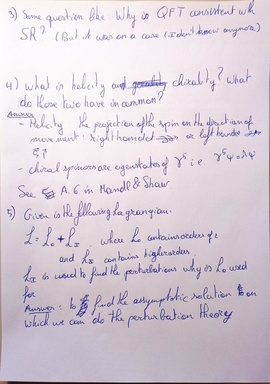 3) Some question like Why is QFT consistent with
SR? (But it was on a case (I don't know anymore)
4) What is helicity and chirality? What
do those two have in common?
Answer
- Helicity the projection of the spin on the direction of
movement: right handed or left handed
- chiral spinors are eigenstates of γ⁵ i.e. γ⁵ψ=λψ
See A.6 in Mandl & Shaw
5) Given is the following Lagrangian:
L = L₀ + L_I where L₀ contains orders of 2
and L_I contains higher orders.
L_I is used to find the perturbations why is L₀ used
for
Answer: to find the asymptotic solution on
which we can do the perturbation theory